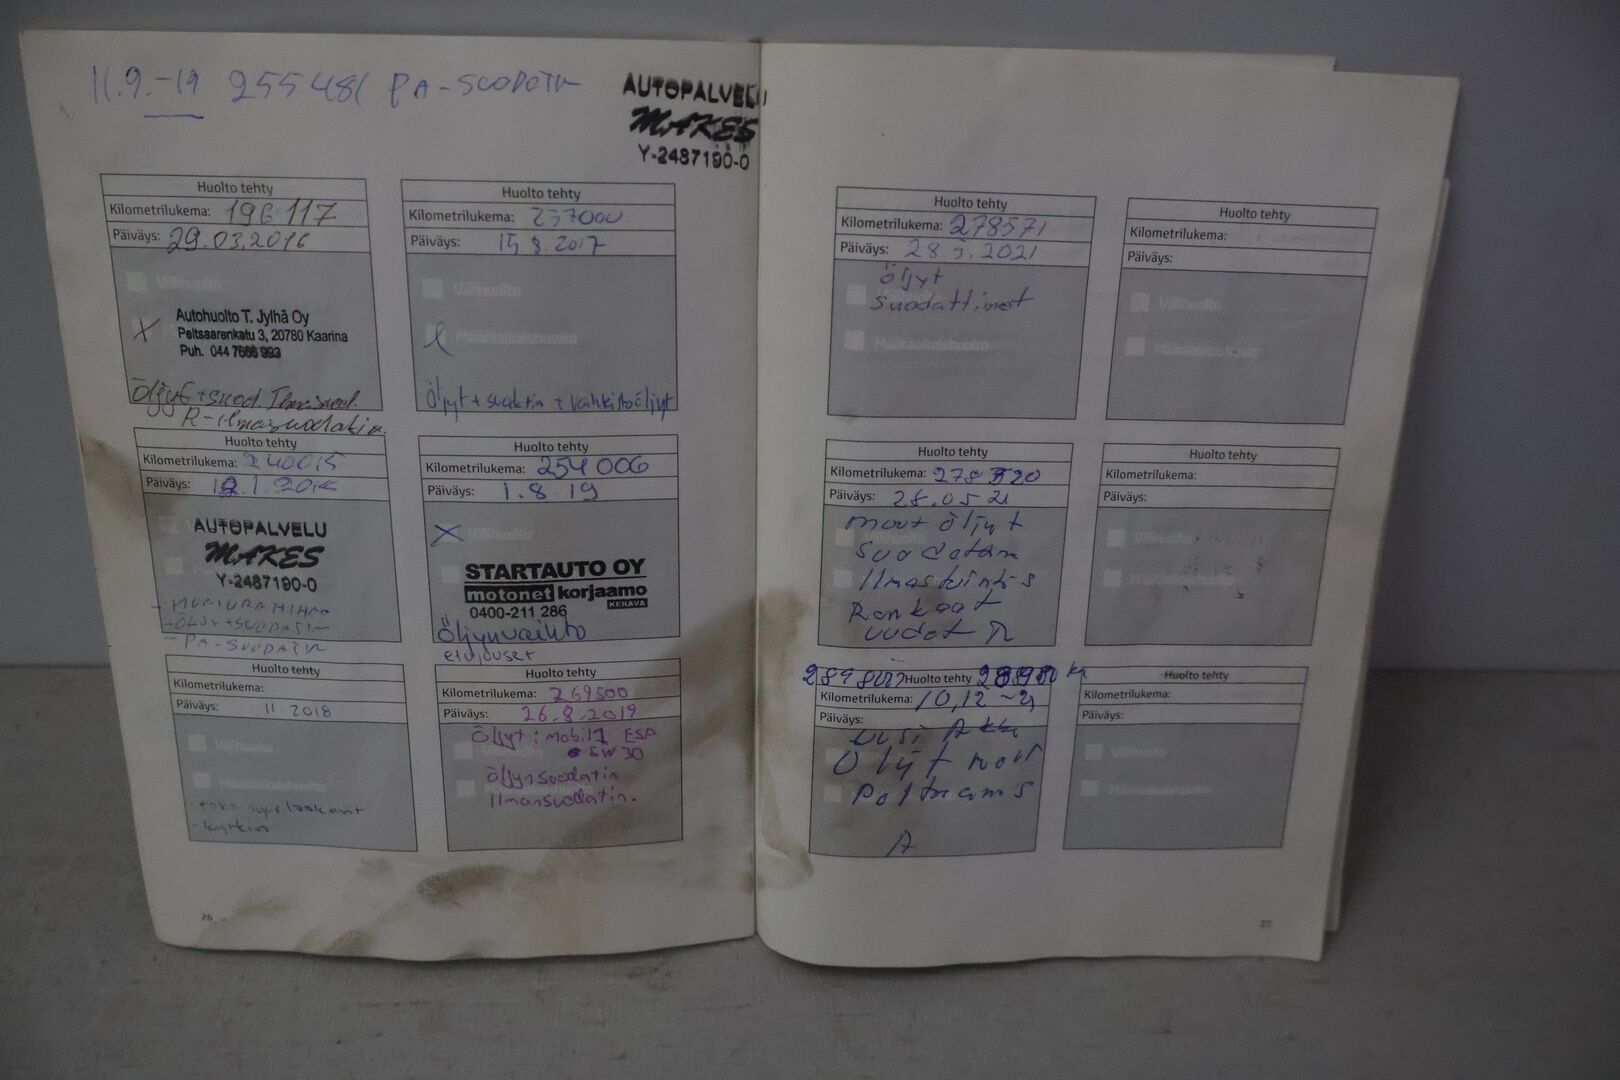 11.9.-19 255481 PA-SUODATIN
AUTOPALVELU
MAKES
Y-2487190-0
Huolto tehty
Kilometrilukema: 196 117
Päiväys: 29.03.2016
Välihuolto
X
Autohuolto T. Jylhä Oy
Peltsaarenkatu 3, 20780 Kaarina
Puh. 044 7666 993
Öljyt + suod.
R-ilmasuodatin.
Huolto tehty
Kilometrilukema: 237000
Päiväys: 15.8.2017
Välihuolto
Määräaikaishuolto
Öljyt + suodatin + vaihkistoöljyt
Huolto tehty
Kilometrilukema: 240015
Päiväys:
AUTOPALVELU
MAKES
Y-2487190-0
- ÖLJY+SUODATIN
- PA-SUODATIN
Huolto tehty
Kilometrilukema: 254 006
Päiväys: 1.8 19
X Välihuolto
STARTAUTO OY
motonet korjaamo
KERAVA
0400-211 286
Öljynvaihto
etujouset
Huolto tehty
Kilometrilukema:
Päiväys: 11.2018
Välihuolto
Määräaikaishuolto
- kytkin
Huolto tehty
Kilometrilukema: 269500
Päiväys: 26.8.2019
Öljyt: mobil1 ESP
5W30
Öljynsuodatin
Ilmansuodatin.
26
Huolto tehty
Kilometrilukema: 278571
Päiväys: 28.5.2021
Öljyt
Suodattimet
Määräaikaishuolto
Huolto tehty
Kilometrilukema:
Päiväys:
Välihuolto
Määräaikaishuolto
Huolto tehty
Kilometrilukema:
Päiväys: 28.05 21
moot öljyt
suodatin
Ilmastointi-s
Renkaat
uudet
Huolto tehty
Kilometrilukema:
Päiväys:
Välihuolto
Määräaikaishuolto
Huolto tehty
Kilometrilukema: 10,12-21
Päiväys:
uusi Akku
Öljyt moot
Huolto tehty
Kilometrilukema:
Päiväys:
Välihuolto
Määräaikaishuolto
27